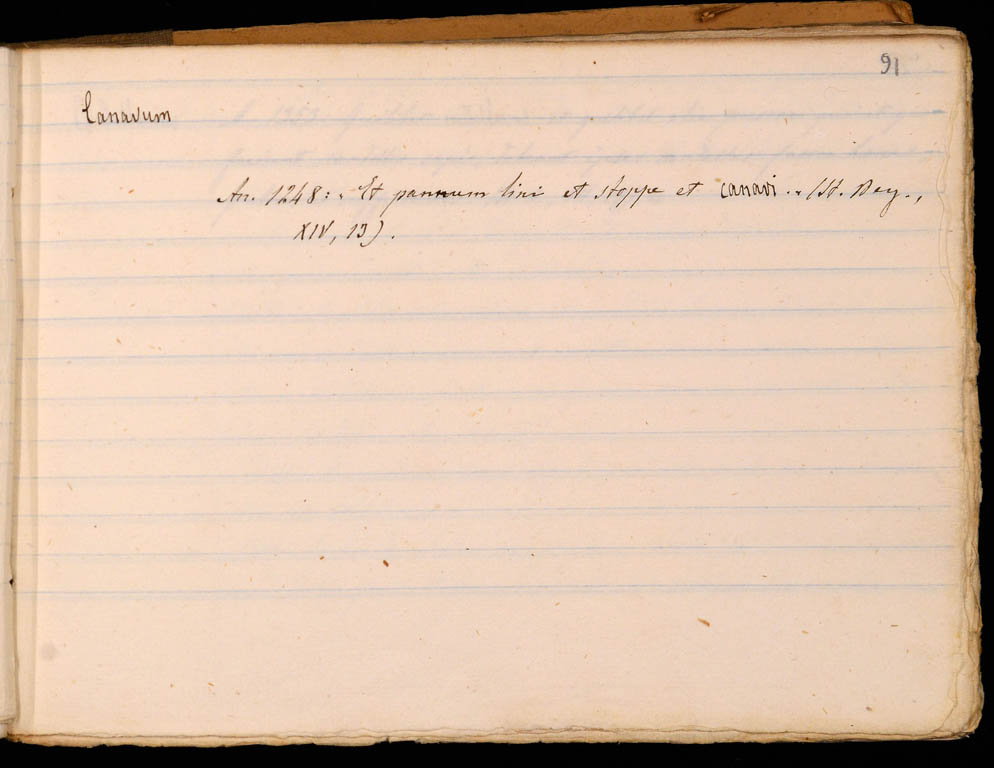 91
Canavum
An. 1248: « Et pannum lini et stoppe et canavi. » (St. Rag.,
XIV, 13).